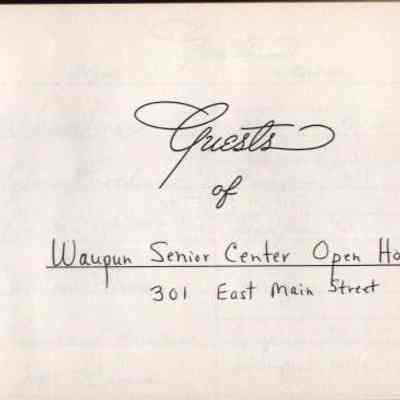 Guests
of
Waupun Senior Center Open Ho
301 East Main Street